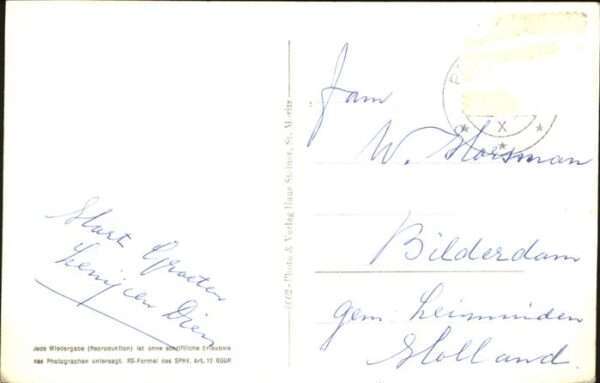 Hart Groeten
Lenij en Dien
Jede Wiedergabe (Reproduktion) ist ohne schriftliche Erlaubnis
des Photographen untersagt. RS-Formel des SPHV, Art. 11 BGUR
7002 - Photo & Verlag Hans Steiner, St. Moritz
Fam
W. Horsman
Bilderdam
gem. Leimuiden
Holland.
X